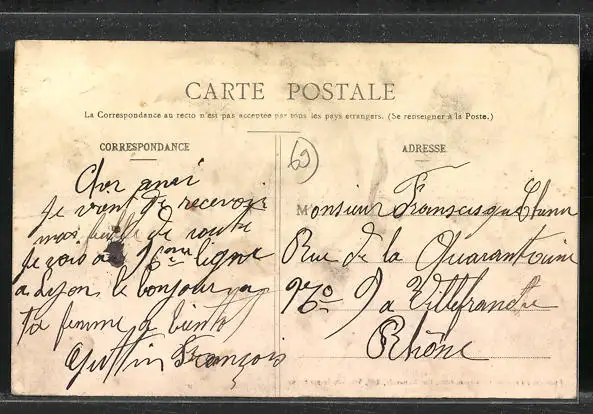 CARTE POSTALE
La Correspondance au recto n'est pas acceptée par tous les pays etrangers. (Se renseigner à la Poste.)
CORRESPONDANCE
69
ADRESSE
Cher ami
je vient de recevoir
mas feuille de route
je vois au ligne
a Lyon le bonjour a
ta femme a bientot
François
Monsieur Francisque
Rue de la Quarantaine
No 9 a Villefranche
Rhône